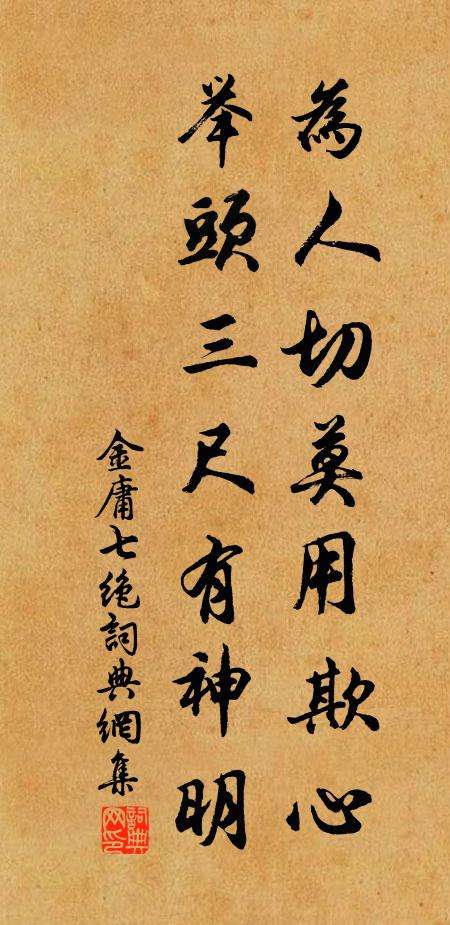 為人切莫用欺心
举頭三尺有神明
金庸七绝詞典網集
詞典网印